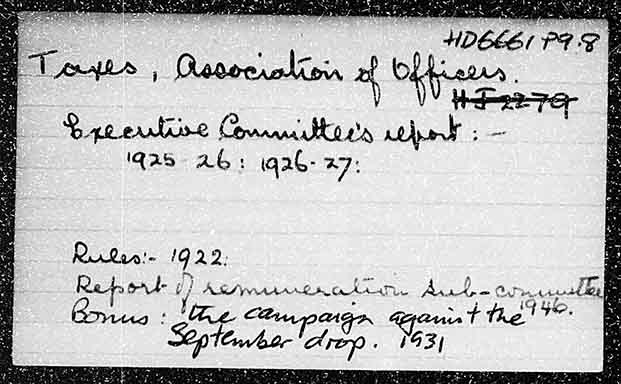 HD6661 P9.8
Taxes, Association of Officers.
HJ 2279
Executive Committee's report: -
1925-26: 1926-27:
Rules:- 1922:
Report of remuneration sub-committee
1946.
Bonus: the campaign against the
September drop. 1931